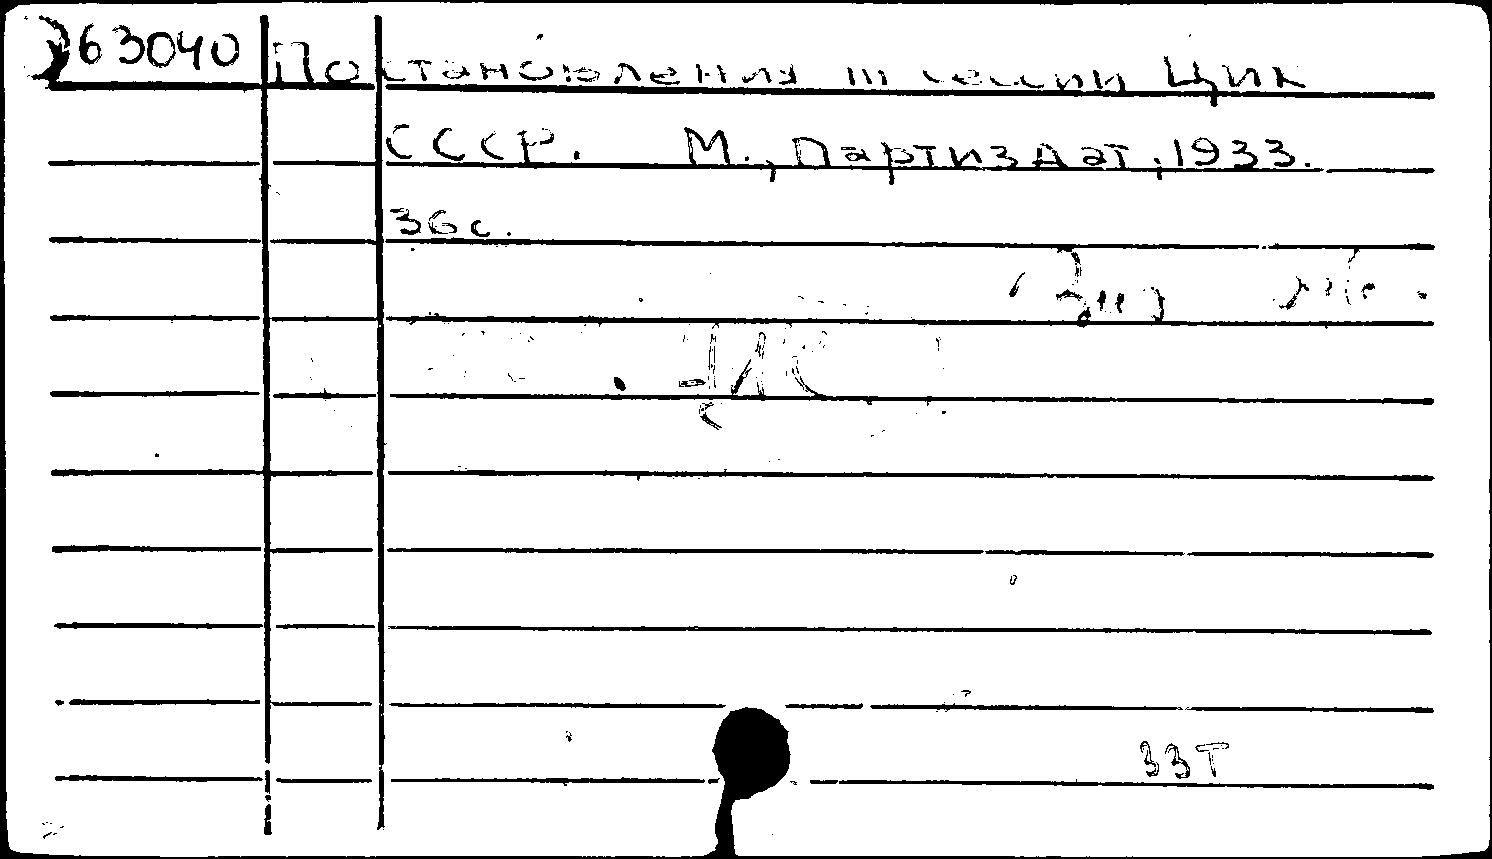 63040 Постановления III сессии ЦИК
СССР. М., Партиздат, 1933.
36 с.
33т